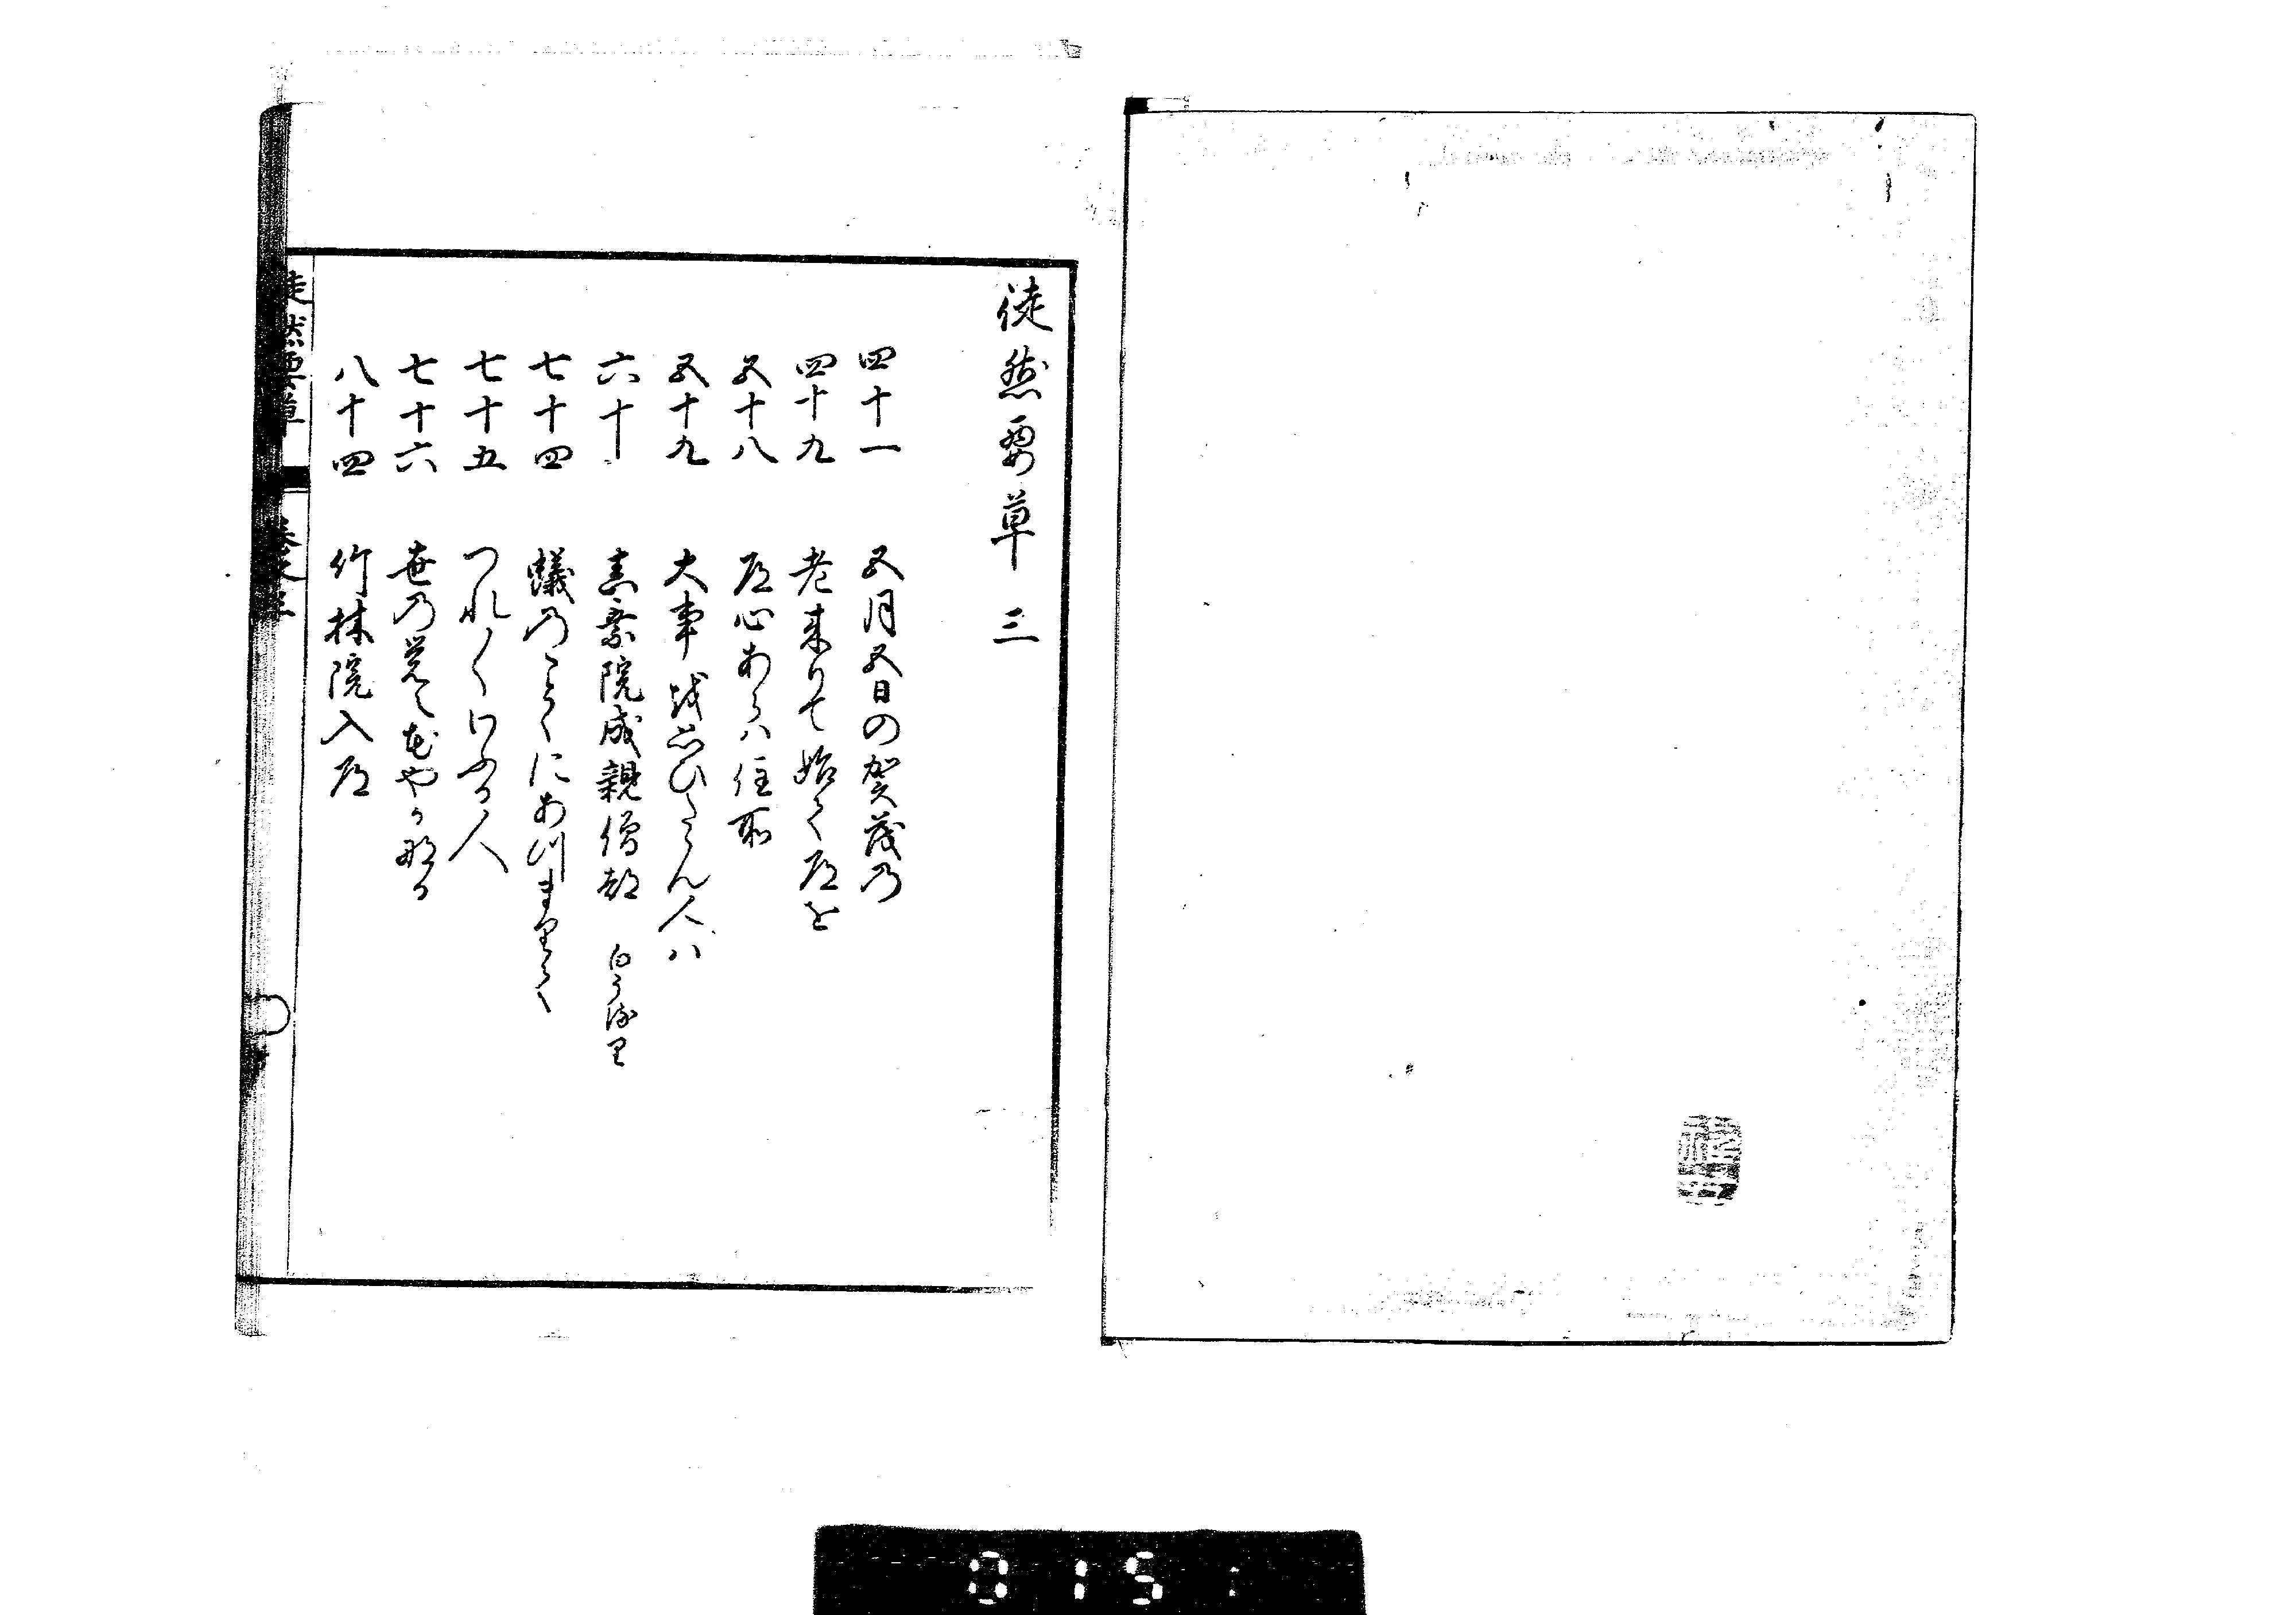 徒然要草 三
四十一 五月五日の賀茂乃
四十九 老来りて始て道を
五十八 道心あらハ住所
五十九 大事越思ひたゝん人ハ
六十 真乗院盛親僧都 白うるり
七十四 蟻乃ことくにあつまりて
七十五 つれ〱わふる人
七十六 世乃覚え花やかなる
八十四 竹林院入道
徒然要草
0151